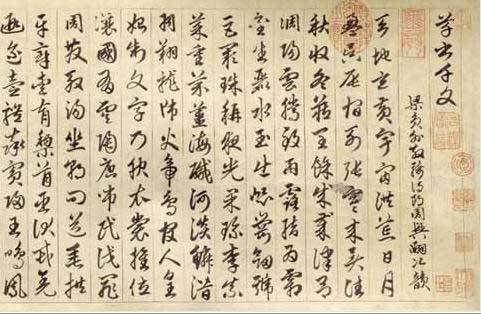 書千文
梁員外散騎侍郎周興嗣次韻
天地玄黃宇宙洪荒日月
盈昃辰宿列張寒來暑往
秋收冬藏閏餘成歲律呂
調陽雲騰致雨露結為霜
金生麗水玉出崑岡劍號
巨闕珠稱夜光果珍李柰
菜重芥薑海鹹河淡鱗潛
羽翔龍師火帝鳥官人皇
始制文字乃服衣裳推位
讓國有虞陶唐弔民伐罪
周發殷湯坐朝問道垂拱
平章愛育黎首臣伏戎羌
遐邇壹體率賓歸王鳴鳳